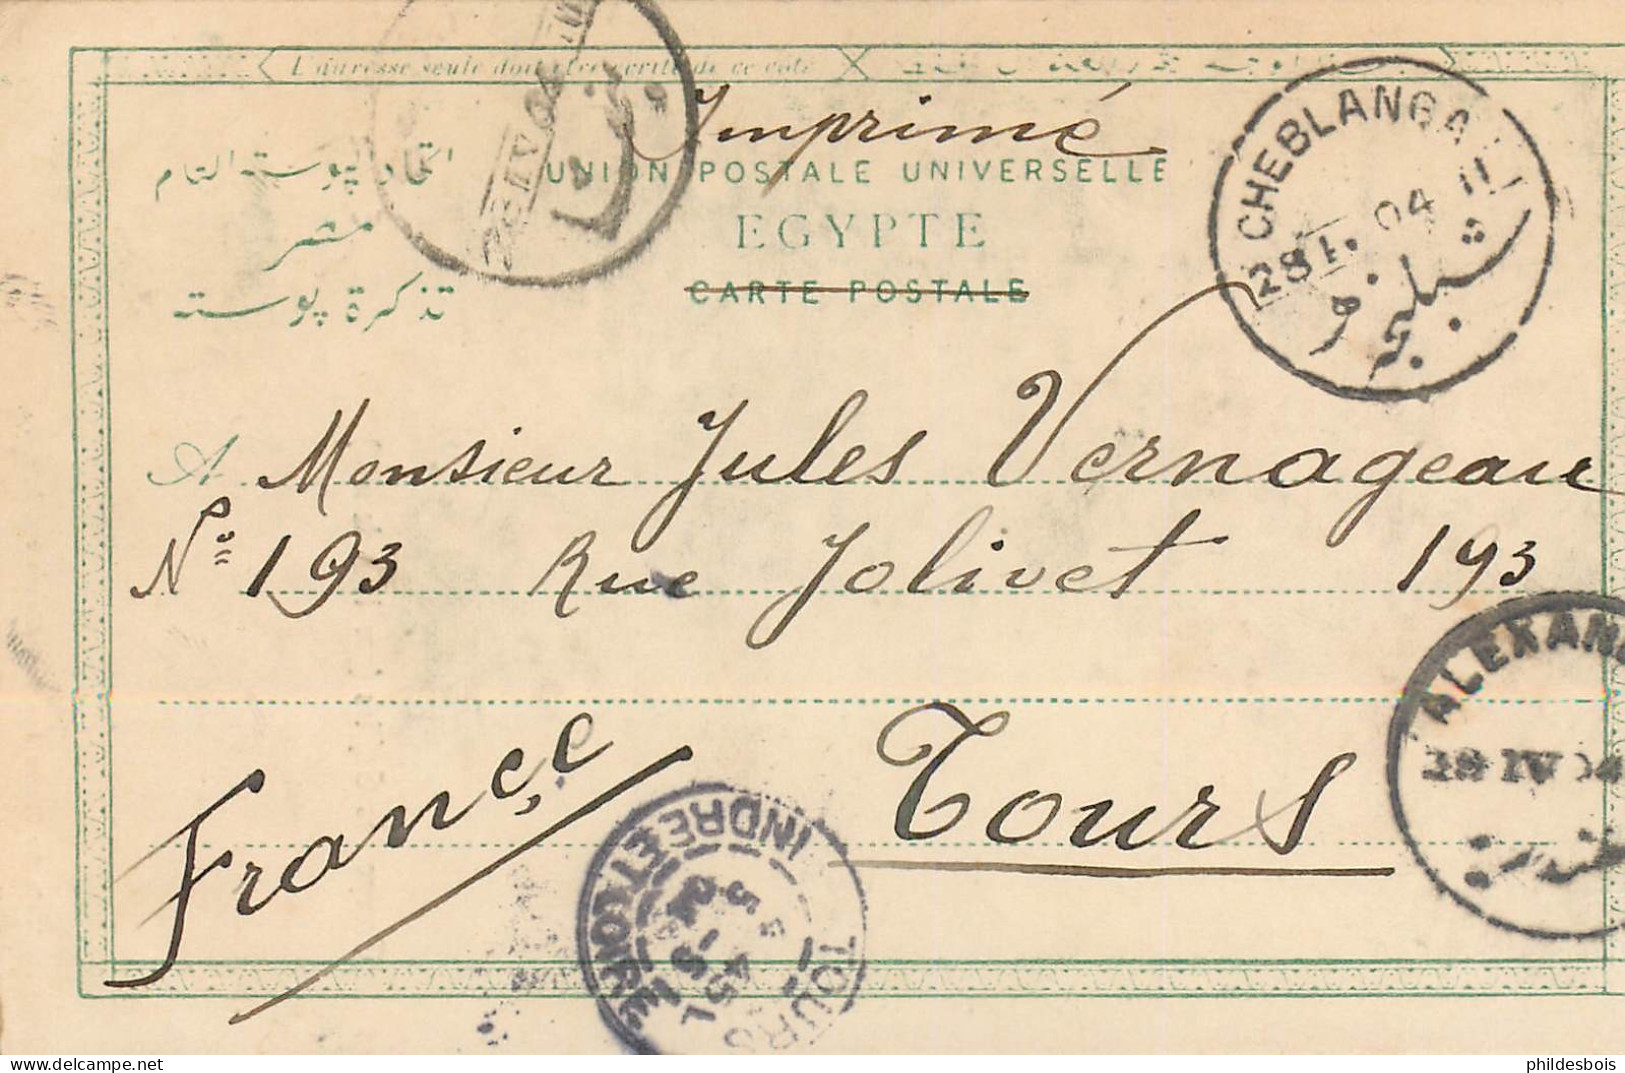 L'adresse seule doit être écrite de ce côté
Imprimé
اتحاد پوستة التام
UNION POSTALE UNIVERSELLE
مصر
EGYPTE
تذكرة پوستة
CARTE POSTALE
CHEBLANGA
28 I. 04 II
شبلنجه
A Monsieur Jules Vernageau
No 193 Rue Jolivet 193
Tours
France
ALEXAN
28 IV 04
TOURS
INDRE ET LOIRE
phildesbois